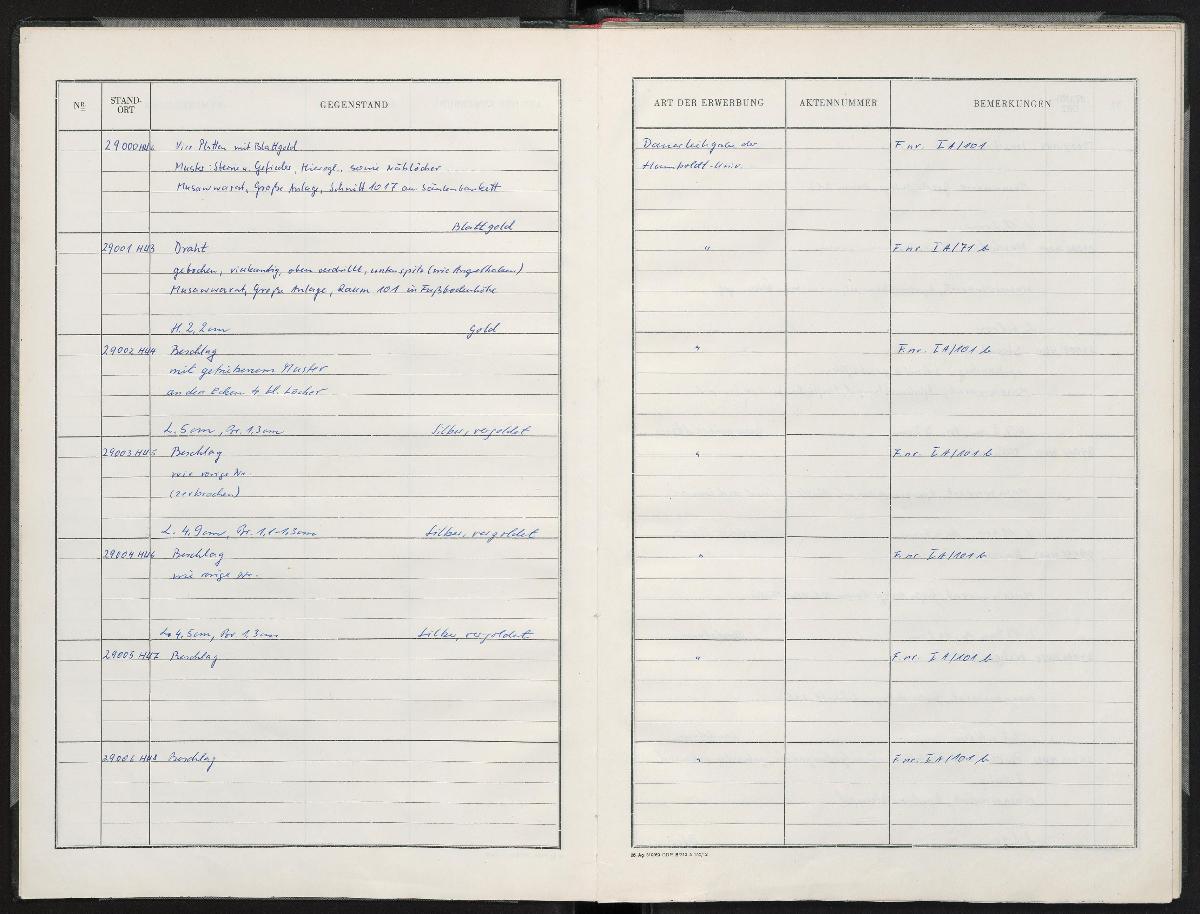 Nº STAND-ORT GEGENSTAND ART DER ERWERBUNG AKTENNUMMER BEMERKUNGEN
29000 Vier Platten mit Blattgold Dauerleihgabe der F. nr. I A/101
Muster: Sterne u. Gefieder, Hierogl., sowie Nählöcher Humboldt-Univ.
Musawwarat, Große Anlage, Schnitt 1017 am
Blattgold
29001 HU3 Draht " F. nr. I A/71 b
gebogen, vierkantig, oben verdrillt, unten spitz (wie Angelhaken)
Musawwarat, Große Anlage, Raum 101 in Fußbodenhöhe
H. 2,2cm Gold
29002 HU4 Beschlag " F. nr. I A/101 b
mit getriebenem Muster
an den Ecken 4 kl. Löcher
L. 5cm, Br. 1,3cm Silber, vergoldet
29003 HU5 Beschlag " F. nr. I A/101 b
wie vorige Nr.
(zerbrochen)
L. 4,9cm, Br. 1,1-1,3cm Silber, vergoldet
29004 HU6 Beschlag " F. nr. I A/101 b
wie vorige Nr.
L. 4,5cm, Br. 1,3cm Silber, vergoldet
29005 HU7 Beschlag " F. nr. I A/101 b
29006 HU8 Beschlag " F. nr. I A/101 b